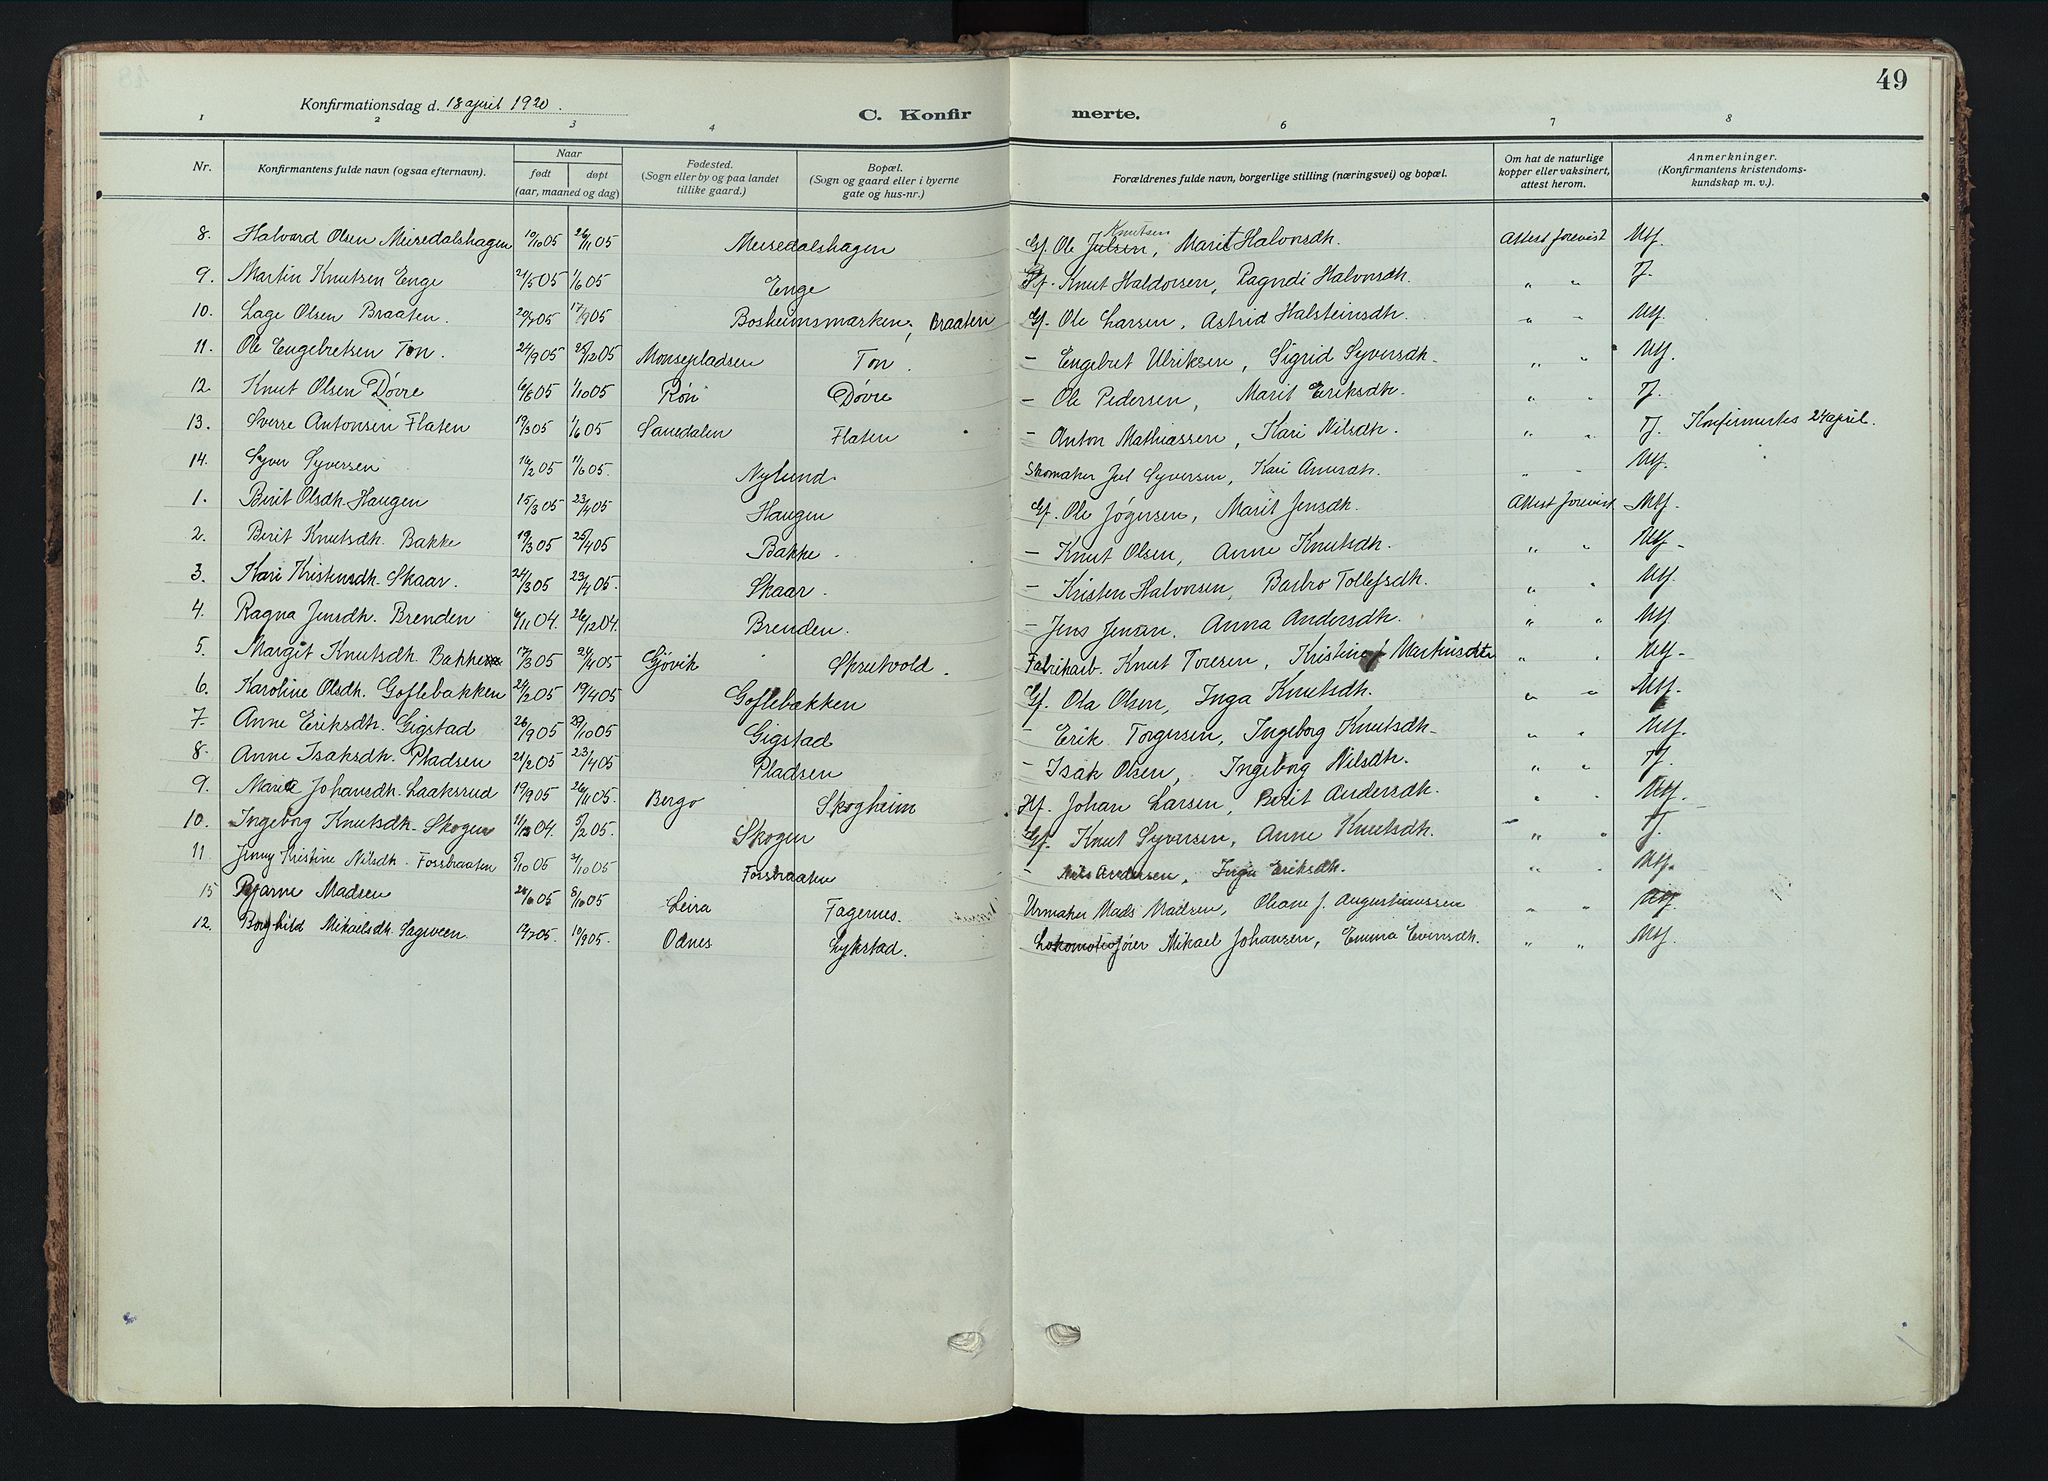 49
Konfirmationsdag d. 18 april 1920.
C. Konfirmerte.
1 2 3 4 6 7 8
Nr. Konfirmantens fulde navn (ogsaa efternavn). Naar født døpt (aar, maaned og dag) Fødested. (Sogn eller by og paa landet tillike gaard.) Bopæl. (Sogn og gaard eller i byerne gate og hus-nr.) Forældrenes fulde navn, borgerlige stilling (næringsvei) og bopæl. Om hat de naturlige kopper eller vaksinert, attest herom. Anmerkninger. (Konfirmantens kristendoms-kundskap m. v.).
8. Halvard Olsen Meisedalshagen 19/10 05 26/11 05 Meisedalshagen Gf. Ole Julsen Knutsen, Marit Halvorsdh. Attest forevist Mtf.
9. Martin Knutsen Enge 21/5 05 1/6 05 Enge Knut Haldorsen, Ragndi Halvorsdh. " " T.
10. Lage Olsen Braaten. 20/7 05 17/9 05 Bosheimsmarken, Braaten Gf. Ole Larsen, Astrid Halsteinsdh. " " Mtf.
11. Ole Engebretsen Ton. 24/9 05 25/12 05 Monsepladsen Ton. – Engebret Ulriksen, Sigrid Syversdh. " " Mtf.
12. Knut Olsen Døvre 6/8 05 1/10 05 Røn Døvre – Ole Pedersen, Marit Eriksdh. " " T.
13. Sverre Antonsen Flaten 19/3 05 1/6 05 Sanedalen Flaten – Anton Mathiassen, Kari Nilsdh. " " T. Konfirmertes 24 april.
14. Syver Syversen 16/2 05 11/6 05. Nylund. Skomaker Jul Syversen, Kari Arnesdh. " " Mtf.
1. Berit Olsdh. Haugen 15/3 05 23/4 05 Haugen Gf. Ole Jøgersen, Marit Jensdh. Attest forevist Mtf.
2. Berit Knutsdh. Bakke 19/3 05 25/4 05 Bakke. – Knut Olsen, Anne Knutsdh. " " Mtf.
3. Kari Kristensdh. Skaar. 24/3 05 23/4 05. Skaar. – Kristen Halvorsen, Barbro Tollefsdh. " " Mtf.
4. Ragna Jensdh. Brenden 6/11 04. 26/12 04. Brenden. – Jens Jensen, Anna Andersdh. " " Mtf.
5. Margit Knutsdh. Bakke 17/3 05 24/4 05 Gjøvik Skrutvold. Fabrikarb. Knut Toresen, Kristine Markusdtr " " Mtf.
6. Karoline Olsdh. Goflebakken 24/2 05 19/4 05 Goflebakken Gf. Ola Olsen, Inga Knutsdh. " " Mtf.
7. Anne Eriksdh. Gigstad 26/9 05 29/10 05 Gigstad – Erik Torgersen, Ingeborg Knutsdh. " " Mtf.
8. Anne Isaksdh. Pladsen 21/2 05 23/4 05 Pladsen – Isak Olsen, Ingeborg Nilsdh. " " T.
9. Marie Johansdh. Laaksrud 19/9 05 26/11 05. Bergo Skogheim Hf. Johan Larsen, Berit Andersdh. " " Mtf.
10. Ingeborg Knutsdh. Skogen 11/12 04. 5/2 05. Skogen Gf. Knut Syversen, Anne Knutsdh. " " T.
11 Jenny Kristine Nilsdh. Fossbraaten 5/10 05 /10 05 Fossbraaten – Nils Andersen, Inga Eriksdh. " " Mtf.
15 Bjarne Madsen 24/6 05 8/10 05 Leira Fagernes. Urmaker Mads Madsen, Oliane J. Augustinussen " " Mtf.
12. Borghild Mikaelsdh. Sagveen. 19/7 05. 10/9 05. Odnes Lykstad. Lokomotivfører Mikael Johansen, Emma Evensdh. " " Mtf.